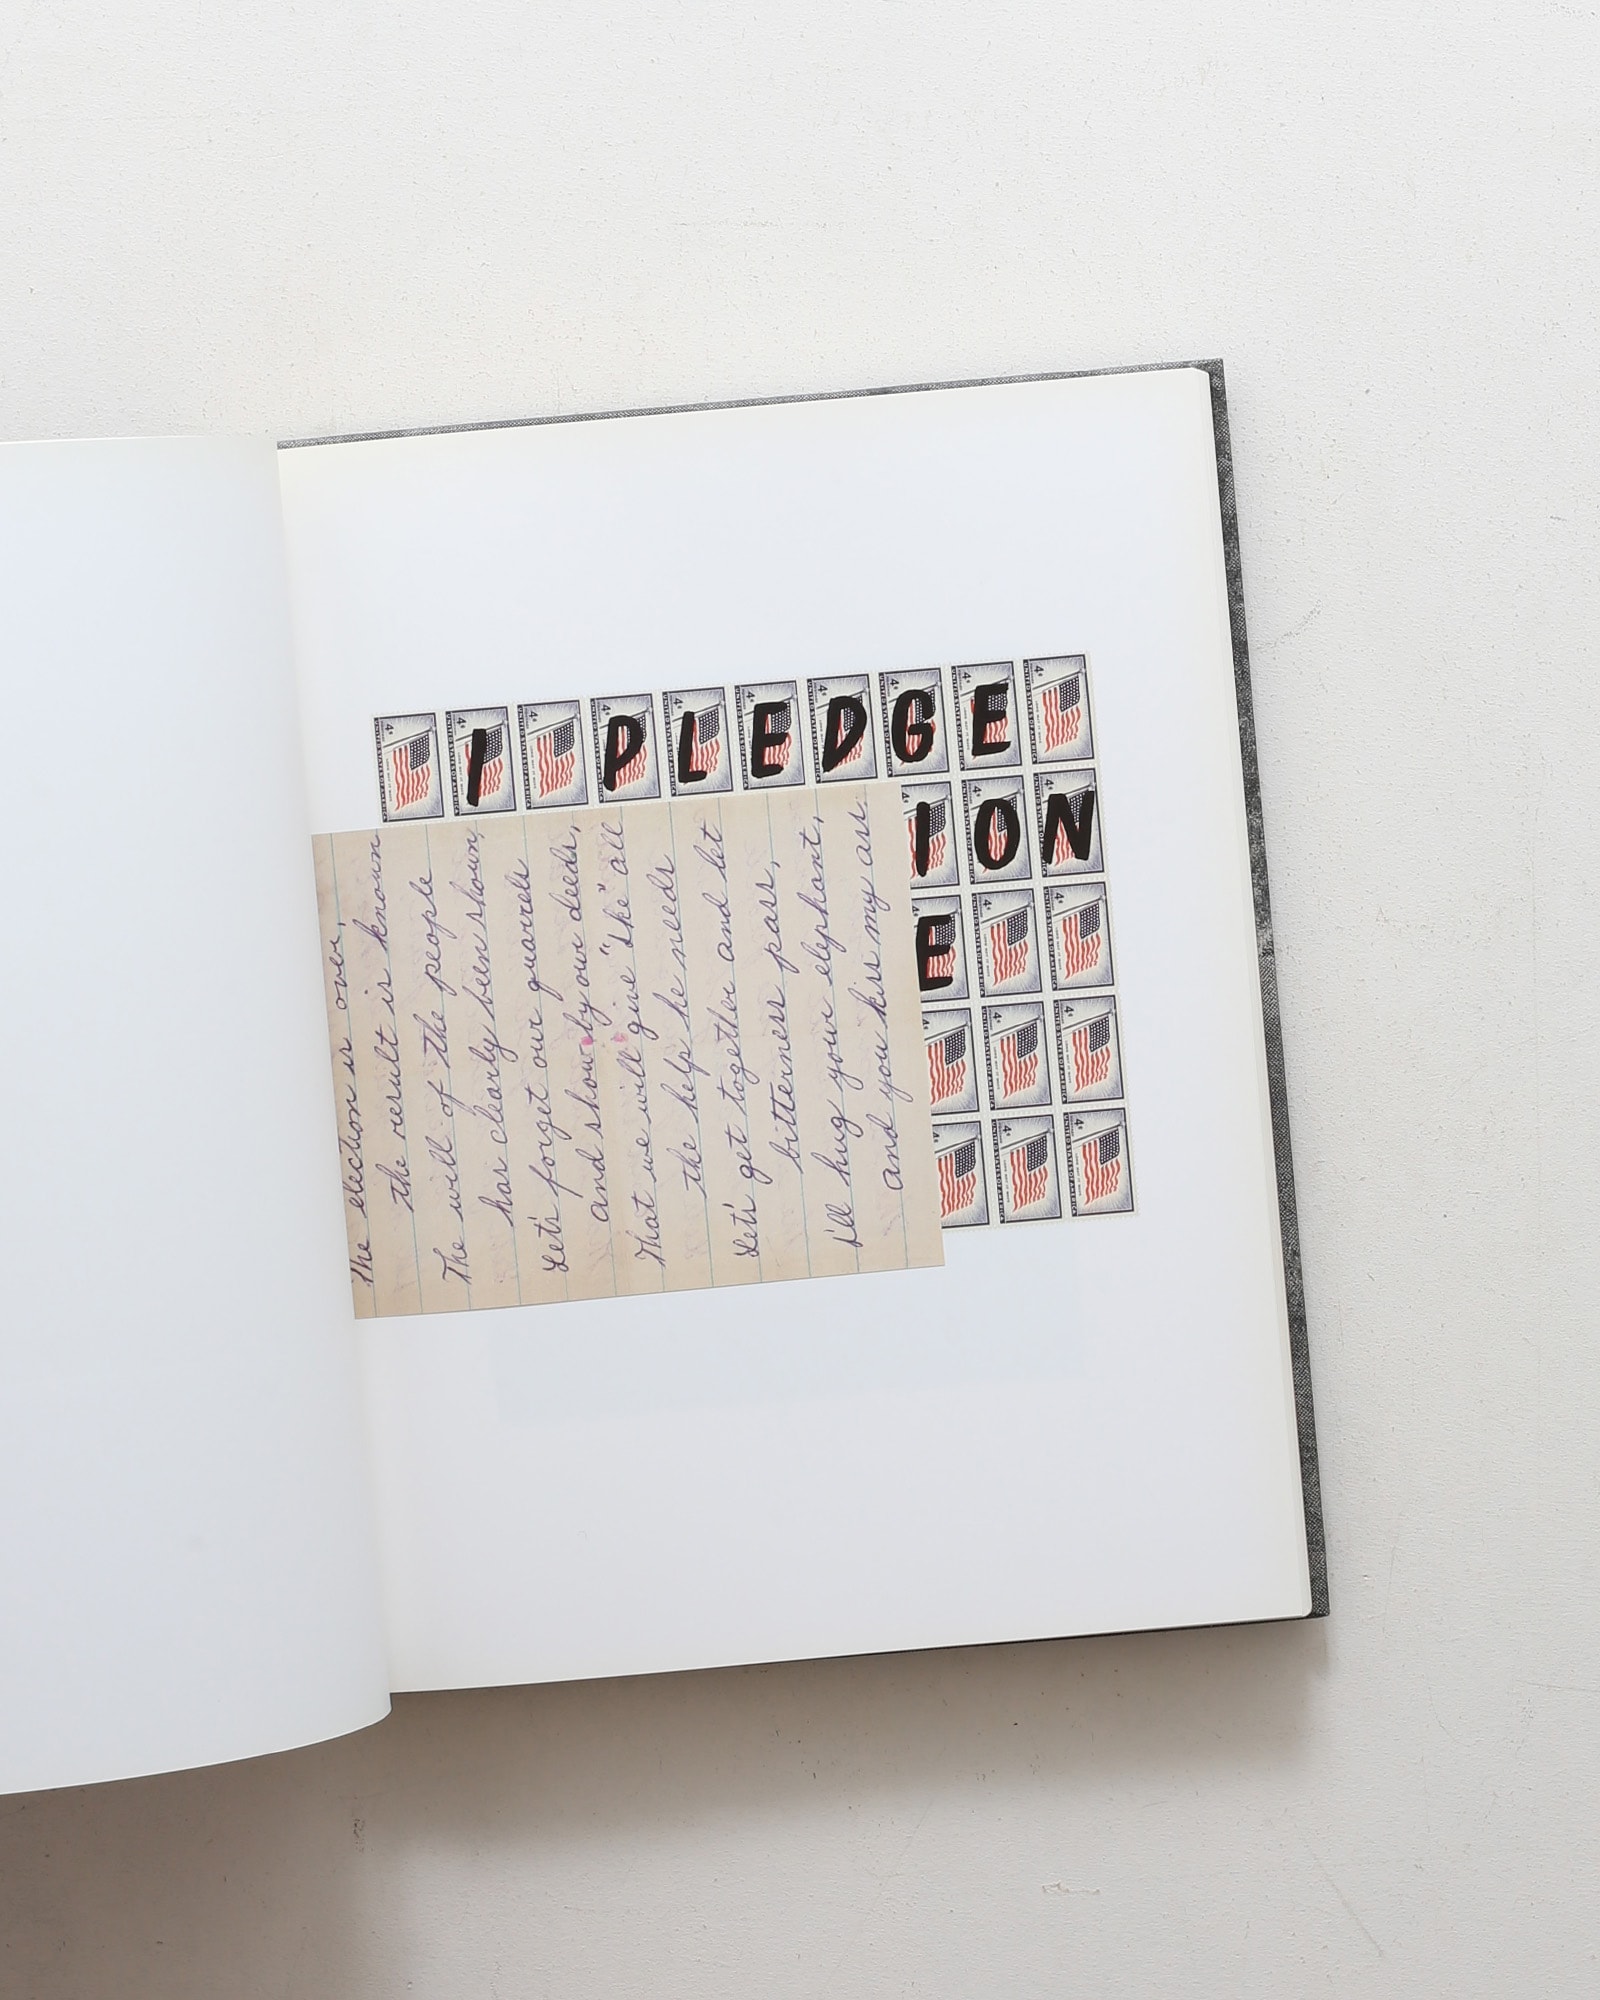 I PLEDGE
ION
E
The election is over,
the result is known
The will of the people
has clearly been shown,
Let's forget our quarrels
and show by our deeds,
That we will give "Ike" all
the help he needs
Let's get together and let
bitterness pass,
I'll hug your elephant,
and you kiss my ass.
4¢
UNITED STATES OF AMERICA